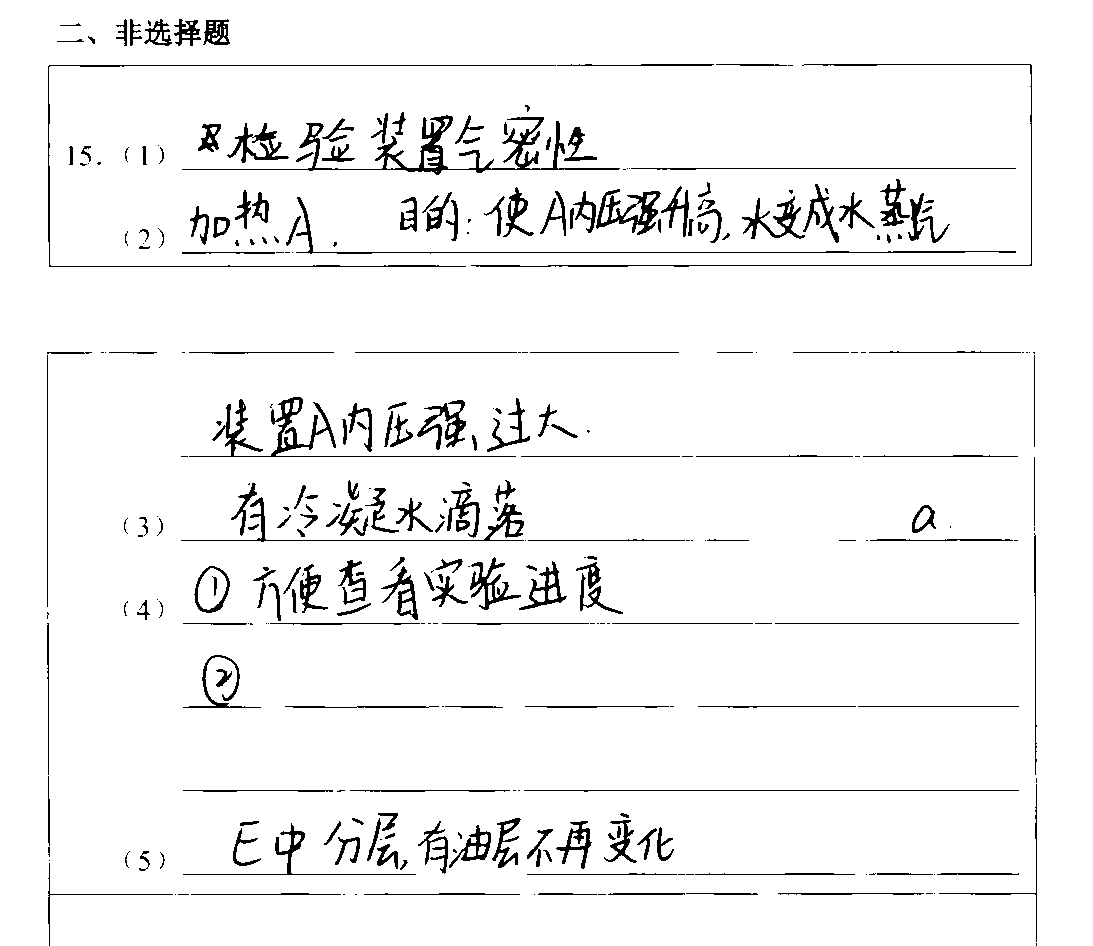 二、非选择题
15.（1）检验装置气密性
（2）加热A. 目的: 使A内压强升高, 水变成水蒸汽
装置A内压强过大.
（3）有冷凝水滴落 a.
（4）①方便查看实验进度
②
（5）E中分层, 有油层不再变化